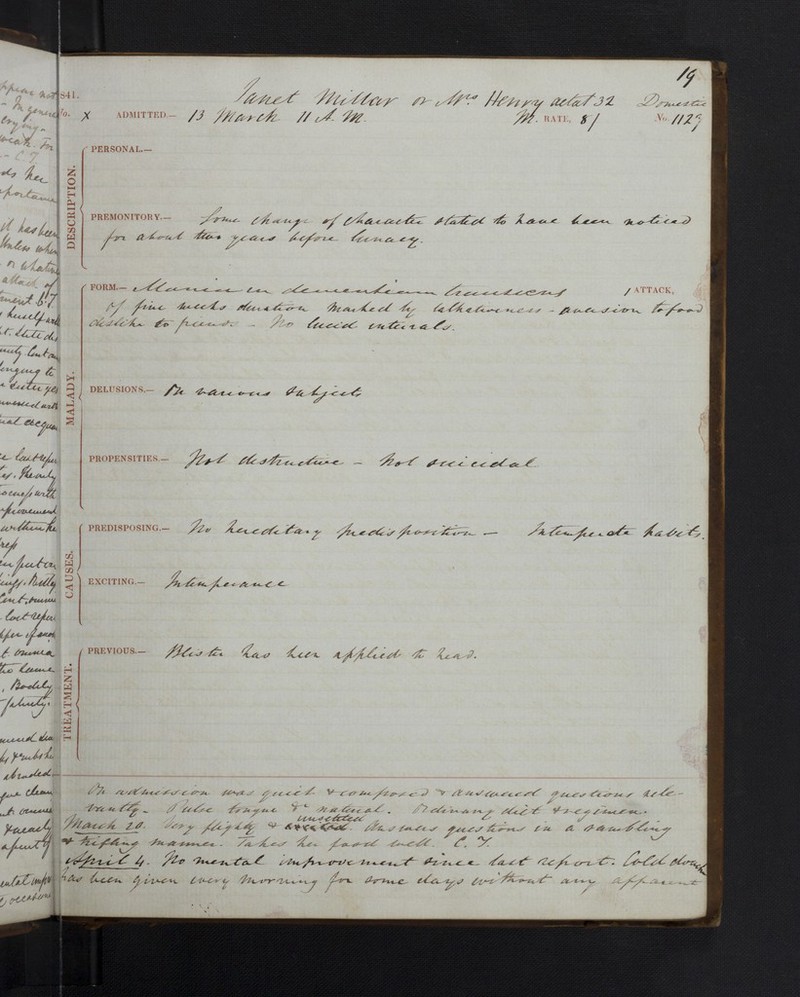 19
841.
Janet Millar or Mrs Henry aetat 32 Domestic
No. X ADMITTED.— 13 March 11 A.M. M. RATE, No 1129
DESCRIPTION.
PERSONAL.—
PREMONITORY.— Some change of character stated to have been noticed
for about two years before lunacy.
MALADY.
FORM.— Mania in dementiam transiens 1 ATTACK,
of five weeks duration marked by talkativeness - aversion to food
dislike to friends - No lucid intervals.
DELUSIONS.— On various subjects
PROPENSITIES.— Not destructive - Not suicidal
CAUSES.
PREDISPOSING.— No hereditary predisposition - Intemperate habits.
EXCITING.— Intemperance
TREATMENT.
PREVIOUS.— Blister has been applied to head.
On admission was quiet & composed & answered questions rele-
vantly. Pulse tongue &c natural. Ordinary diet & regimen.
March 20. Very flighty & unsettled. Answers questions in a rambling
& trifling manner. Takes her food well. C. T.
April 4. No mental improvement since last report. Cold douche
has been given every morning for some days without any apparent